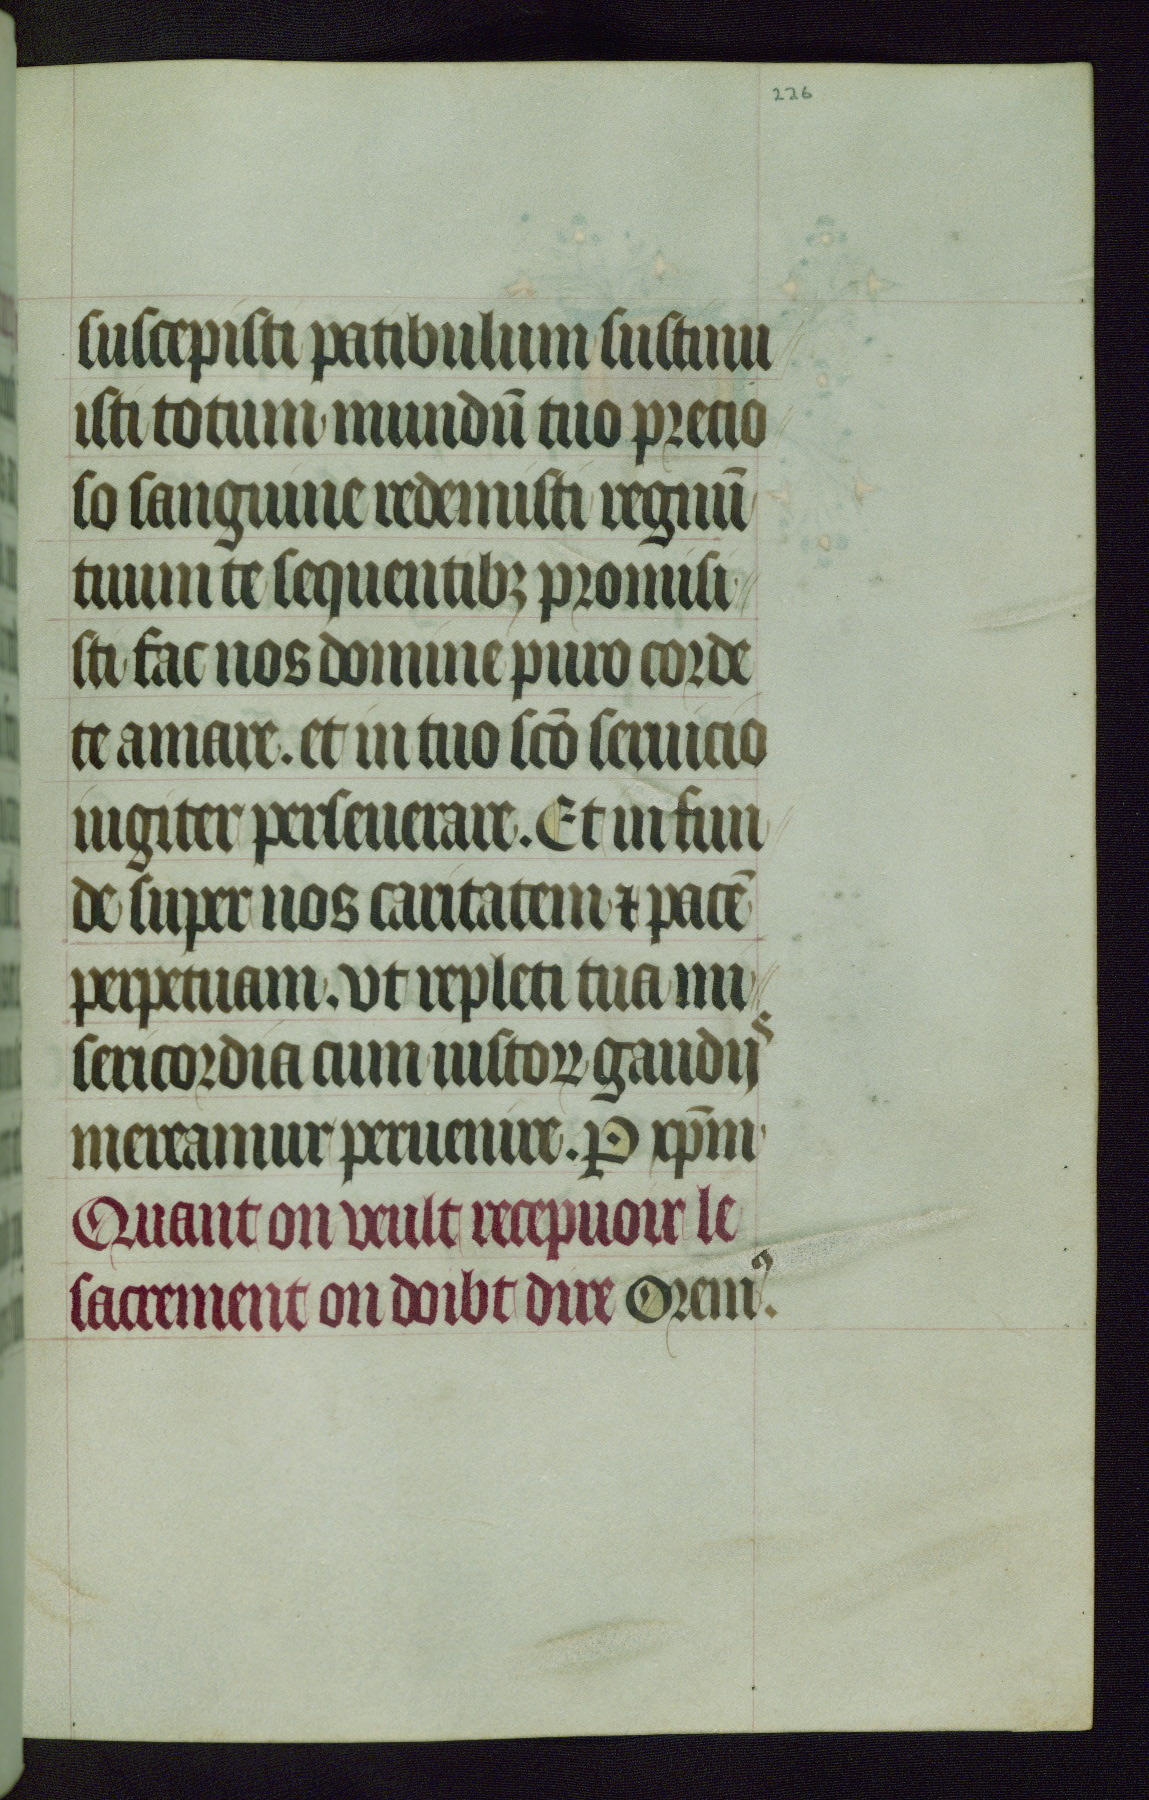 226
suscepisti patibulum sustinu
isti totum mundū tuo precio
so sanguine redemisti regnū
tuum te sequentibꝫ promisi
sti fac nos domine puro corde
te amare. et in tuo scō seruicio
iugiter perseuerare. Et infun
de super nos caritatem ⁊ pacē
perpetuam. vt repleti tua mi
sericordia cum iustoꝝ gaudijs
mereamur peruenire. P xp̄m
Quant on veult recepuoir le
sacrement on doibt dire Oremꝰ.